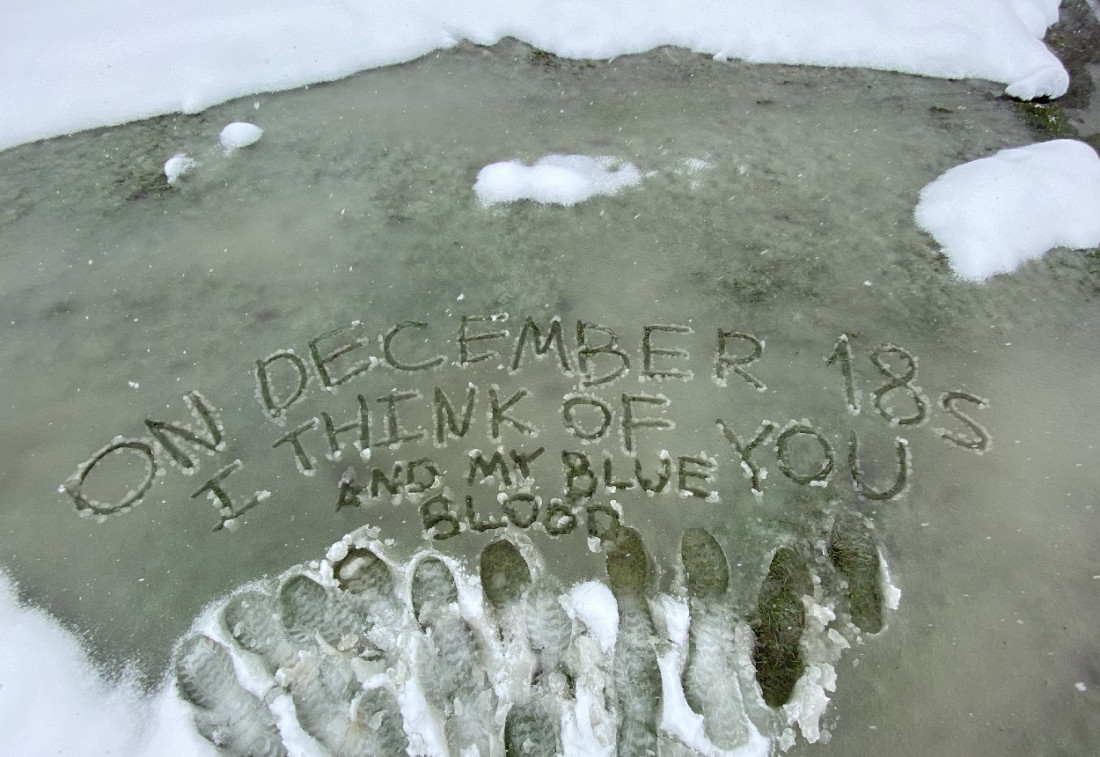 ON DECEMBER 18S
I THINK OF YOU
AND MY BLUE
BLOOD